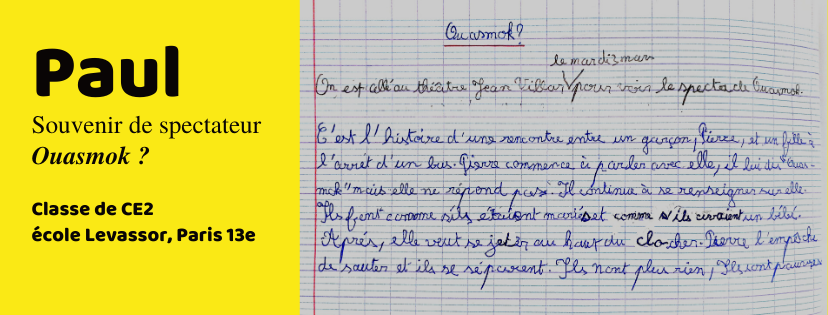 Paul
Souvenir de spectateur
Ouasmok ?
Classe de CE2
école Levassor, Paris 13e
Ouasmok?
le mardi 3 mars
On est allé au théâtre Jean Villar pour voir le spectacle Ouasmok.
C'est l'histoire d'une rencontre entre un garçon, Pierre, et un fille à
l'arrêt d'un bus. Pierre commence à parler avec elle, il lui dit "Ouas-
mok" mais elle ne répond pas. Il continua à se renseigner sur elle.
Ils font comme s'ils étaient mariés et comme s'ils avaient un bébé.
Après, elle veut se jeter au haut du clocher. Pierre l'empêche
de sauter et ils se séparent. Ils n'ont plus rien, Ils sont pauvres